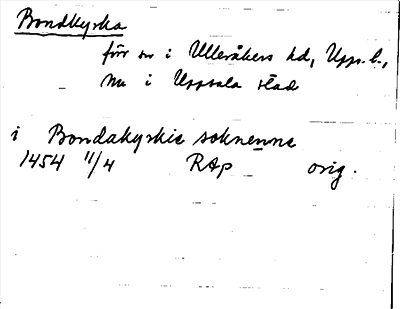 Bondkyrka
förr sn i Ulleråkers hd, Upps. l.,
nu i Uppsala stad
i Bondakyrkie soknenne
1454 11/4 RAp orig.